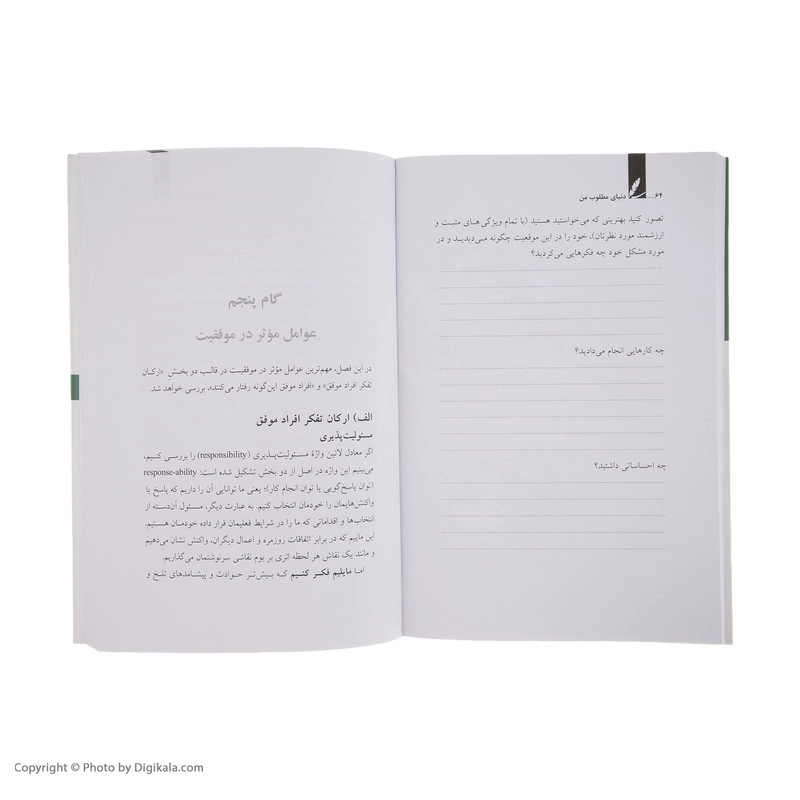 ۶۴... دنیای مطلوب من
تصور کنید بهترینی که می‌خواستید هستید (با تمام ویژگی‌های مثبت و
ارزشمند مورد نظرتان)، خود را در این موقعیت چگونه می‌دیدید و در
مورد مشکل خود چه فکرهایی می‌کردید؟
چه کارهایی انجام می‌دادید؟
چه احساساتی داشتید؟
گام پنجم
عوامل مؤثر در موفقیت
در این فصل، مهم‌ترین عوامل مؤثر در موفقیت در قالب دو بخش «ارکان
تفکر افراد موفق» و «افراد موفق این‌گونه رفتار می‌کنند»، بررسی خواهد شد.
الف) ارکان تفکر افراد موفق
مسئولیت‌پذیری
اگر معادل لاتین واژهٔ مسئولیت‌پذیری (responsibility) را بررسی کنیم،
می‌بینیم این واژه در اصل از دو بخش تشکیل شده است: response-ability
(توان پاسخ‌گویی یا توان انجام کار)؛ یعنی ما توانایی آن را داریم که پاسخ یا
واکنش‌هایمان را خودمان انتخاب کنیم. به عبارت دیگر، مسئول آن‌دسته از
انتخاب‌ها و اقداماتی که ما را در شرایط فعلیمان قرار داده خودمان هستیم.
این ماییم که در برابر اتفاقات روزمره و اعمال دیگران، واکنش نشان می‌دهیم
و مانند یک نقاش هر لحظه اثری بر بوم نقاشی سرنوشتمان می‌گذاریم.
اما مایلیم فکر کنیم که بیش‌تر حوادث و پیشامدهای تلخ و
Copyright © Photo by Digikala.com